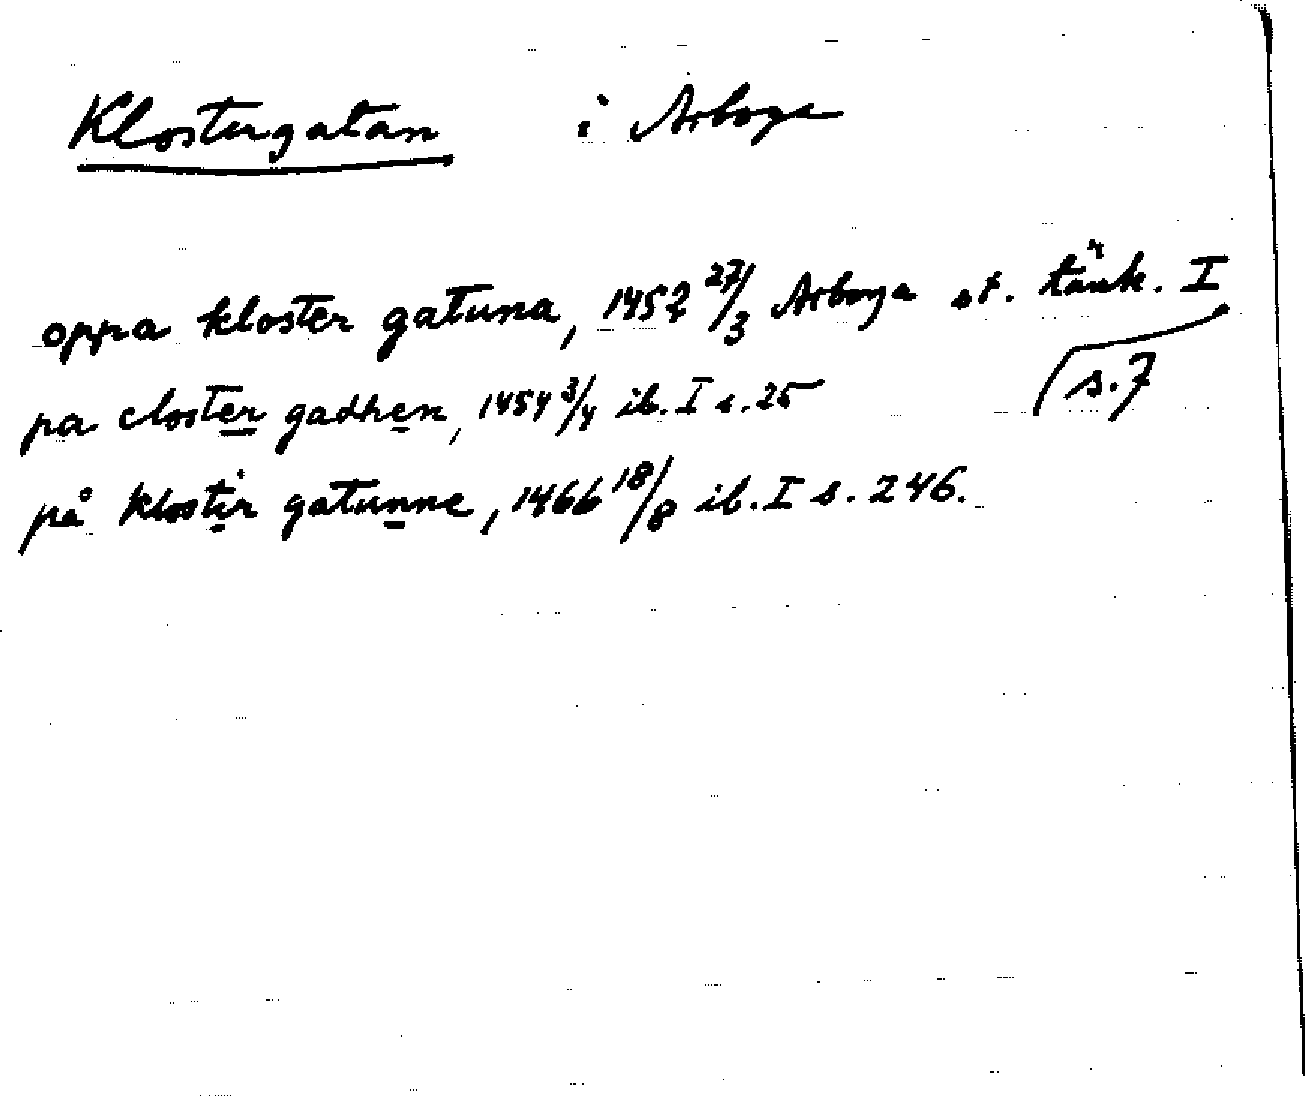 Klostergatan i Arboga
oppa kloster gatuna, 1452 27/3 Arboga st. tänk. I
s. 7
pa closter gadhen, 1454 3/4 ib. I s. 25
på klostir gatunne, 1466 18/8 ib. I s. 246.